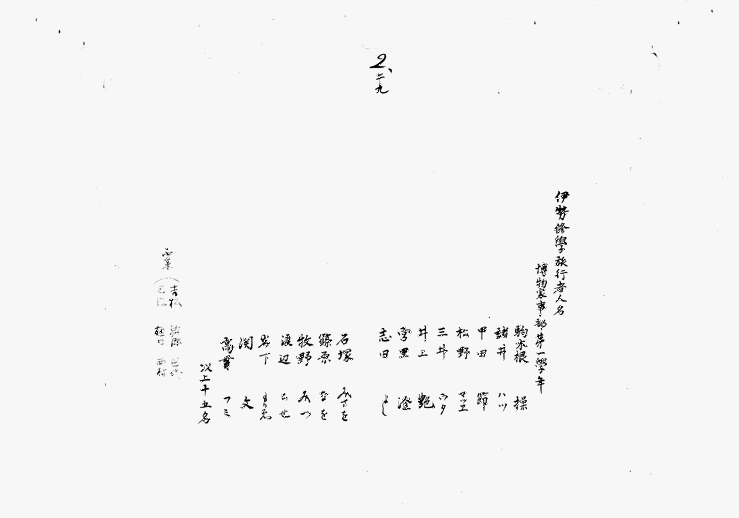 2、二九
伊勢修學旅行者人名
博物家事部第一學年
駒木根 操
諸井 ハツ
甲田 節
松野 マツエ
三井 ウタ
井上 艶
宮里
志田 よし
石塚 みさを
篠原 なを
牧野 みつ
渡辺 ちせ
岩下
関 文
高貫 フミ
以上十五名
吉松
西村